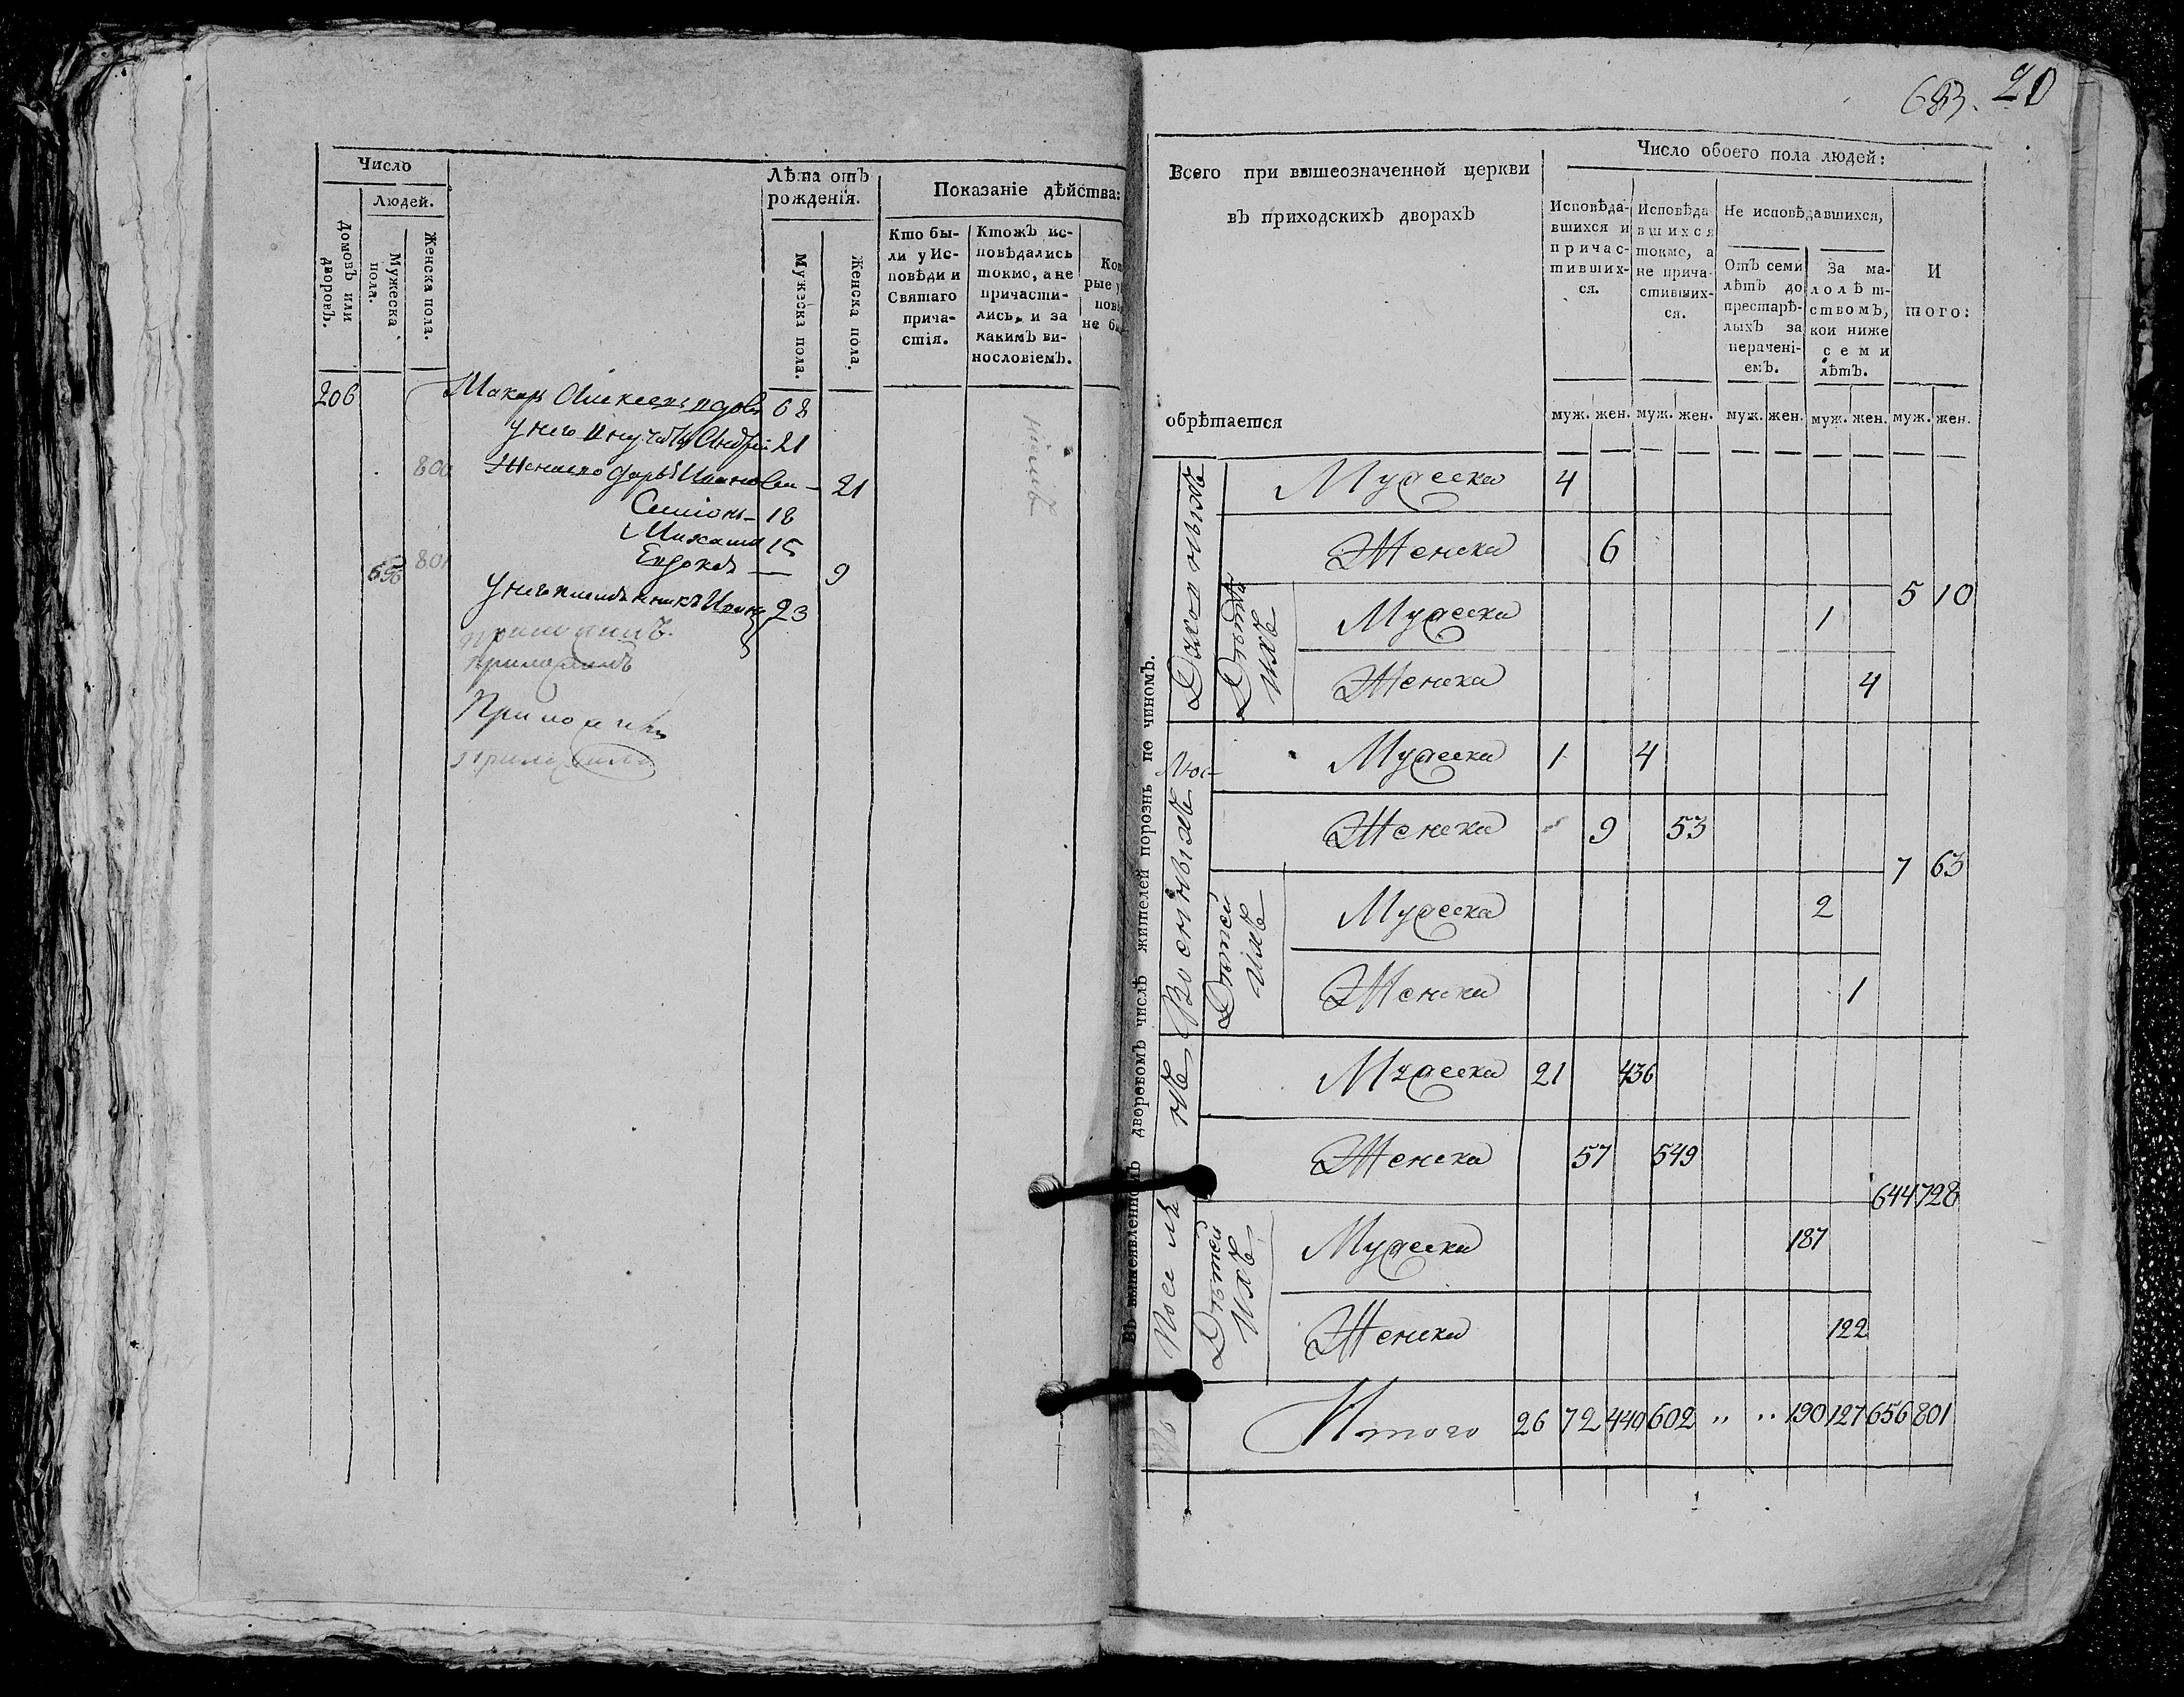 Число
Людей.
Домовъ или дворовъ.
Мужеска пола.
Женска пола.
Лѣта отъ рожденїя.
Мужеска пола.
Женска пола.
Показанїе дѣйства:
Кто бы-
ли у Ис-
повѣди и
Святаго
прича-
стїя.
Ктожъ ис-
повѣдались
токмо, а не
причасти-
лись, и за
какимъ ви-
нословїемъ.
206 Макаръ Алексеевъ вдовъ 68
у него внучата Андрей 21
800 Жена его Дарья Иванова 21
Симіонъ 18
Михаила 15
656 801 Евдокея 9
у него племянникъ Иванъ 23
20
Всего при вышеозначенной церкви
въ приходскихъ дворахъ
обрѣтается
Число обоего пола людей:
Исповѣда-
вшихся и
причас-
тивших-
ся.
Исповѣда
вшихся
токмо, а
не прича-
стивших-
ся.
Не исповѣдавшихся,
Отъ семи
лѣтъ до
престарѣ-
лыхъ за
нераченї-
емъ.
За ма-
лолѣт-
ствомъ,
кои ниже
семи
лѣтъ.
И
того:
муж. жен. муж. жен. муж. жен. муж. жен. муж. жен.
Въ вышеявленномъ дворовомъ числѣ жителей порознь по чиномъ.
Духовныхъ
Мужеска 4
Женска 6
5 10
Дѣтей ихъ
Мужеска 1
Женска 4
Военныхъ
Мужеска 1 4
Женска 9 53
7 63
Дѣтей ихъ
Мужеска 2
Женска 1
Мужеска 21 436
Женска 57 549
644 728
Дѣтей ихъ
Мужеска 187
Женска 122
Итого 26 72 440 602 " " 190 127 656 801